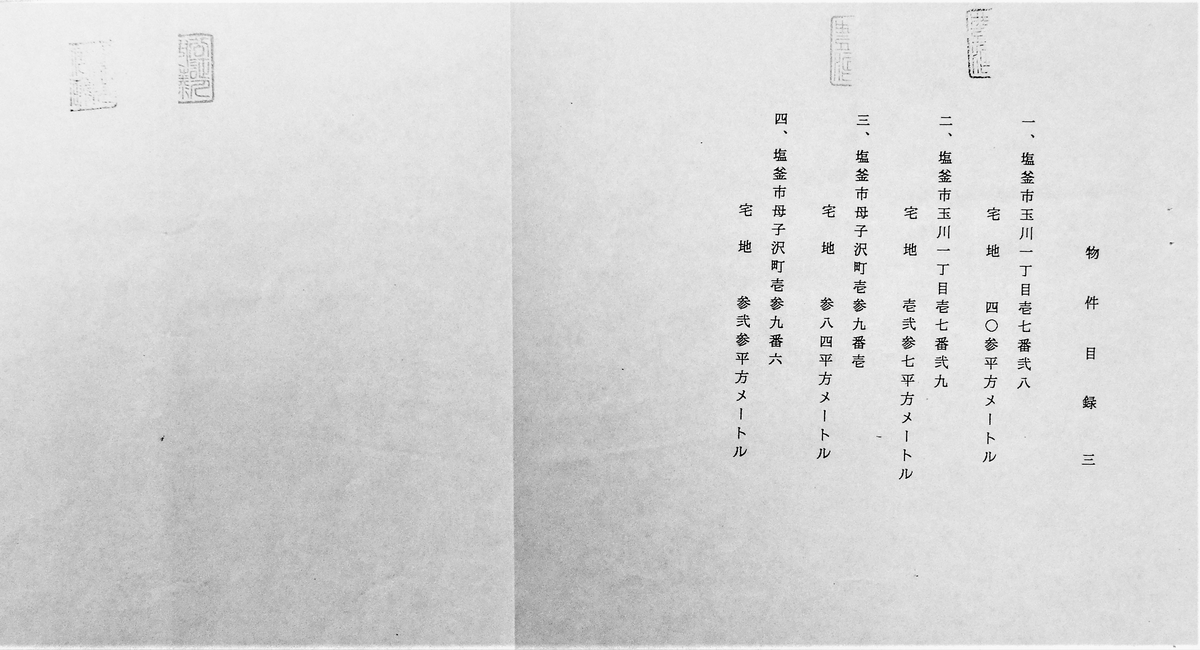 物件目録三
一、塩釜市玉川一丁目壱七番弐八
宅地 四〇参平方メートル
二、塩釜市玉川一丁目壱七番弐九
宅地 壱弐参七平方メートル
三、塩釜市母子沢町壱参九番壱
宅地 参八四平方メートル
四、塩釜市母子沢町壱参九番六
宅地 参弐参平方メートル